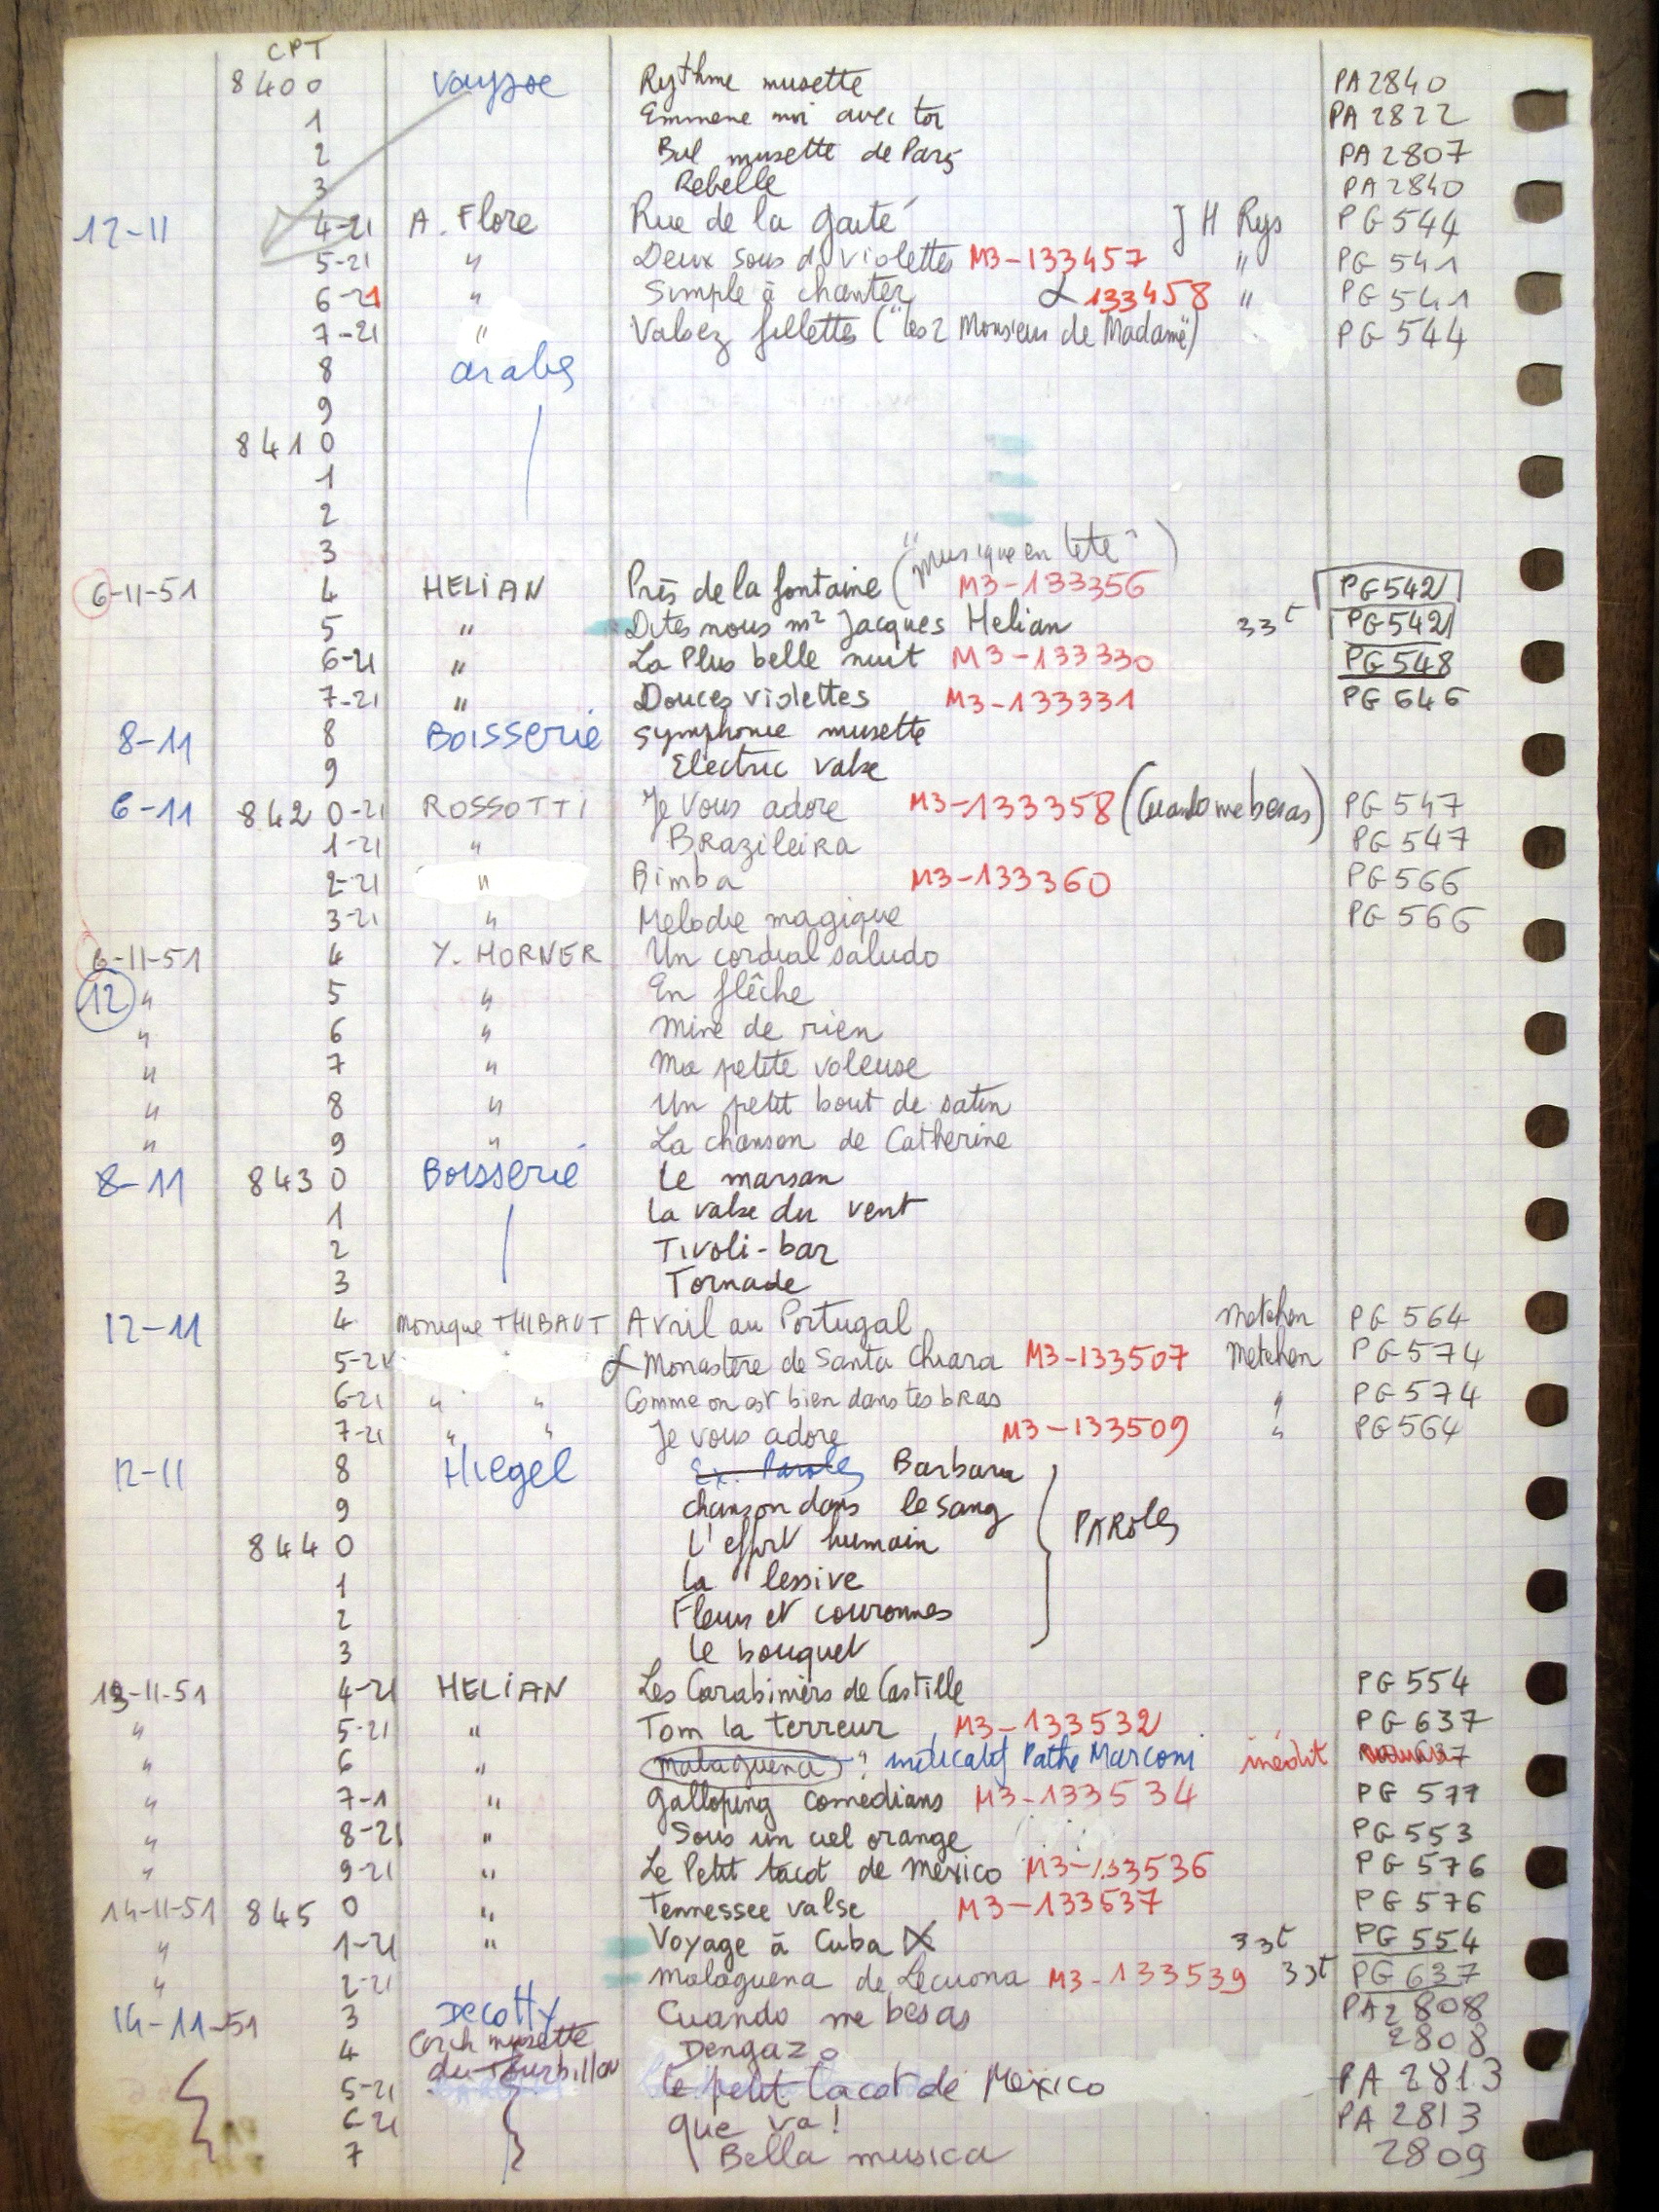 CPT
8400 Vaysse Rythme musette PA 2840
1 Emmene moi avec toi PA 2822
2 Bal musette de Paris PA 2807
3 Rebelle PA 2840
12-11 4-21 A. Flore Rue de la gaité J H Rys PG 544
5-21 " Deux sous d violettes M3-133457 " PG 541
6-21 " Simple à chanter 133458 " PG 541
7-21 " Valsez fillettes ("les 2 Monsieur de Madame") PG 544
8 arabes
9
8410
1
2
3
6-11-51 4 HELIAN Près de la fontaine ("Musique en tete") M3-133356 PG 542
5 " Dites nous mr Jacques Helian 33t PG 542
6-21 " La Plus belle nuit M3-133330 PG 548
7-21 " Douces violettes M3-133331 PG 546
8-11 8 BOISSERIE symphonie musette
9 Electric valse
6-11 8420-21 ROSSOTTI Je vous adore M3-133358 (Cuando me besas) PG 547
1-21 " Brazileira PG 547
2-21 " Bimba M3-133360 PG 566
3-21 " Melodie magique PG 566
6-11-51 4 Y. HORNER Un cordial saludo
12 " 5 " En flêche
" 6 " Mine de rien
" 7 " Ma petite voleuse
" 8 " Un petit bout de satin
" 9 " La chanson de Catherine
8-11 8430 Boisserie Le marsan
1 La valse du vent
2 Tivoli-bar
3 Tornade
12-11 4 Monique THIBAUT Avril au Portugal Metehen PG 564
5-21 Monastère de Santa Chiara M3-133507 Metehen PG 574
6-21 " " Comme on est bien dans tes bras " PG 574
7-21 " " Je vous adore M3-133509 " PG 564
12-11 8 Hiegel Ex. Paroles Barbara
9 chanson dans le sang
8440 L'effort humain PAROLES
1 La lessive
2 Fleurs et couronnes
3 Le bouquet
13-11-51 4-21 HELIAN Les Carabiniers de Castille PG 554
" 5-21 " Tom la terreur M3-133532 PG 637
" 6 " malaguena " indicatif Pathe Marconi inédit
" 7-1 " galloping comedians M3-133534 PG 577
" 8-21 " Sous un ciel orange PG 553
" 9-21 " Le Petit tacot de mexico M3-133536 PG 576
14-11-51 8450 " Tennessee valse M3-133537 PG 576
" 1-21 " Voyage à Cuba 33t PG 554
" 2-21 malaguena de Lecuona M3-133539 33t PG 637
14-11-51 3 Decotty Cuando me besas PA 2808
4 Orch musette Dengazo 2808
du Tourbillon
5-21 Le petit tacot de Mexico PA 2813
6-21 que va! PA 2813
7 Bella musica 2809